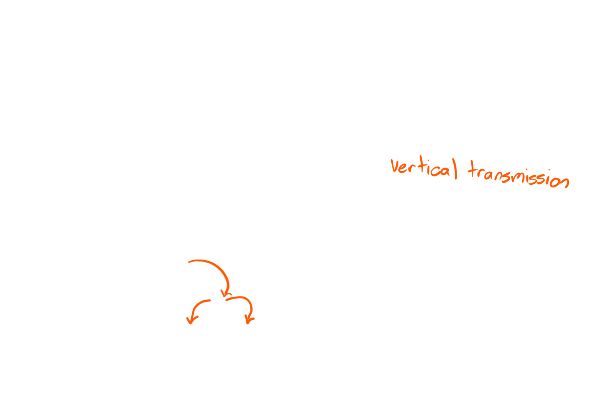 vertical transmission